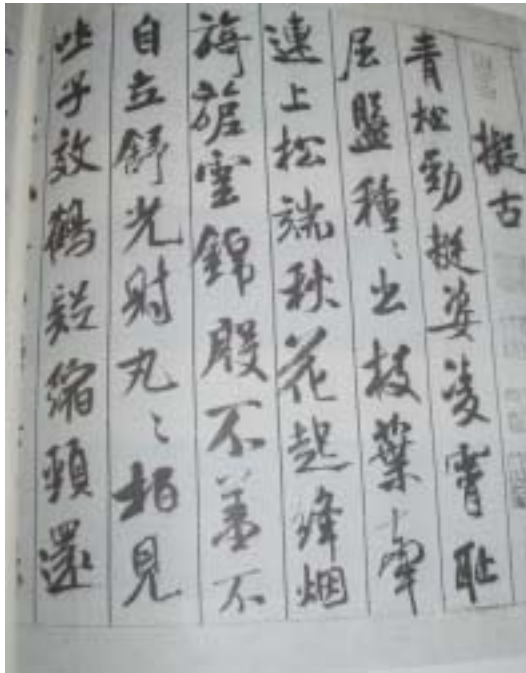 擬古
青松勁挺姿凌霄耻
屈盤種〻出枝葉牽
連上松端秋花起絳烟
旖旎雲錦殷不羞不
自立舒光射丸〻柏見
吐子效鶴疑縮頸還